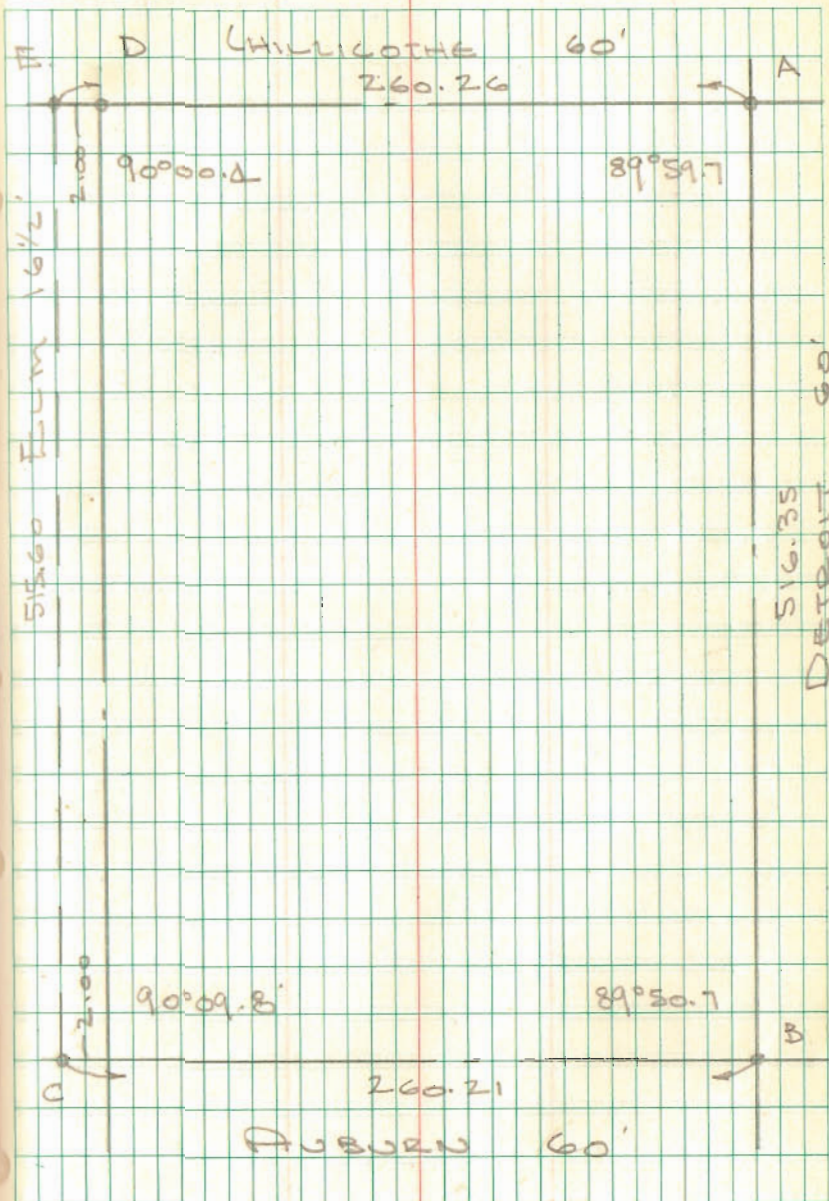 E D CHILLICOTHE 60' A
260.26
2.00 90°00.4 89°59.7
515.60 ELM 16½'
516.35
DETROIT 60'
2.00 90°09.8' 89°50.7
C 260.21 B
AUBURN 60'